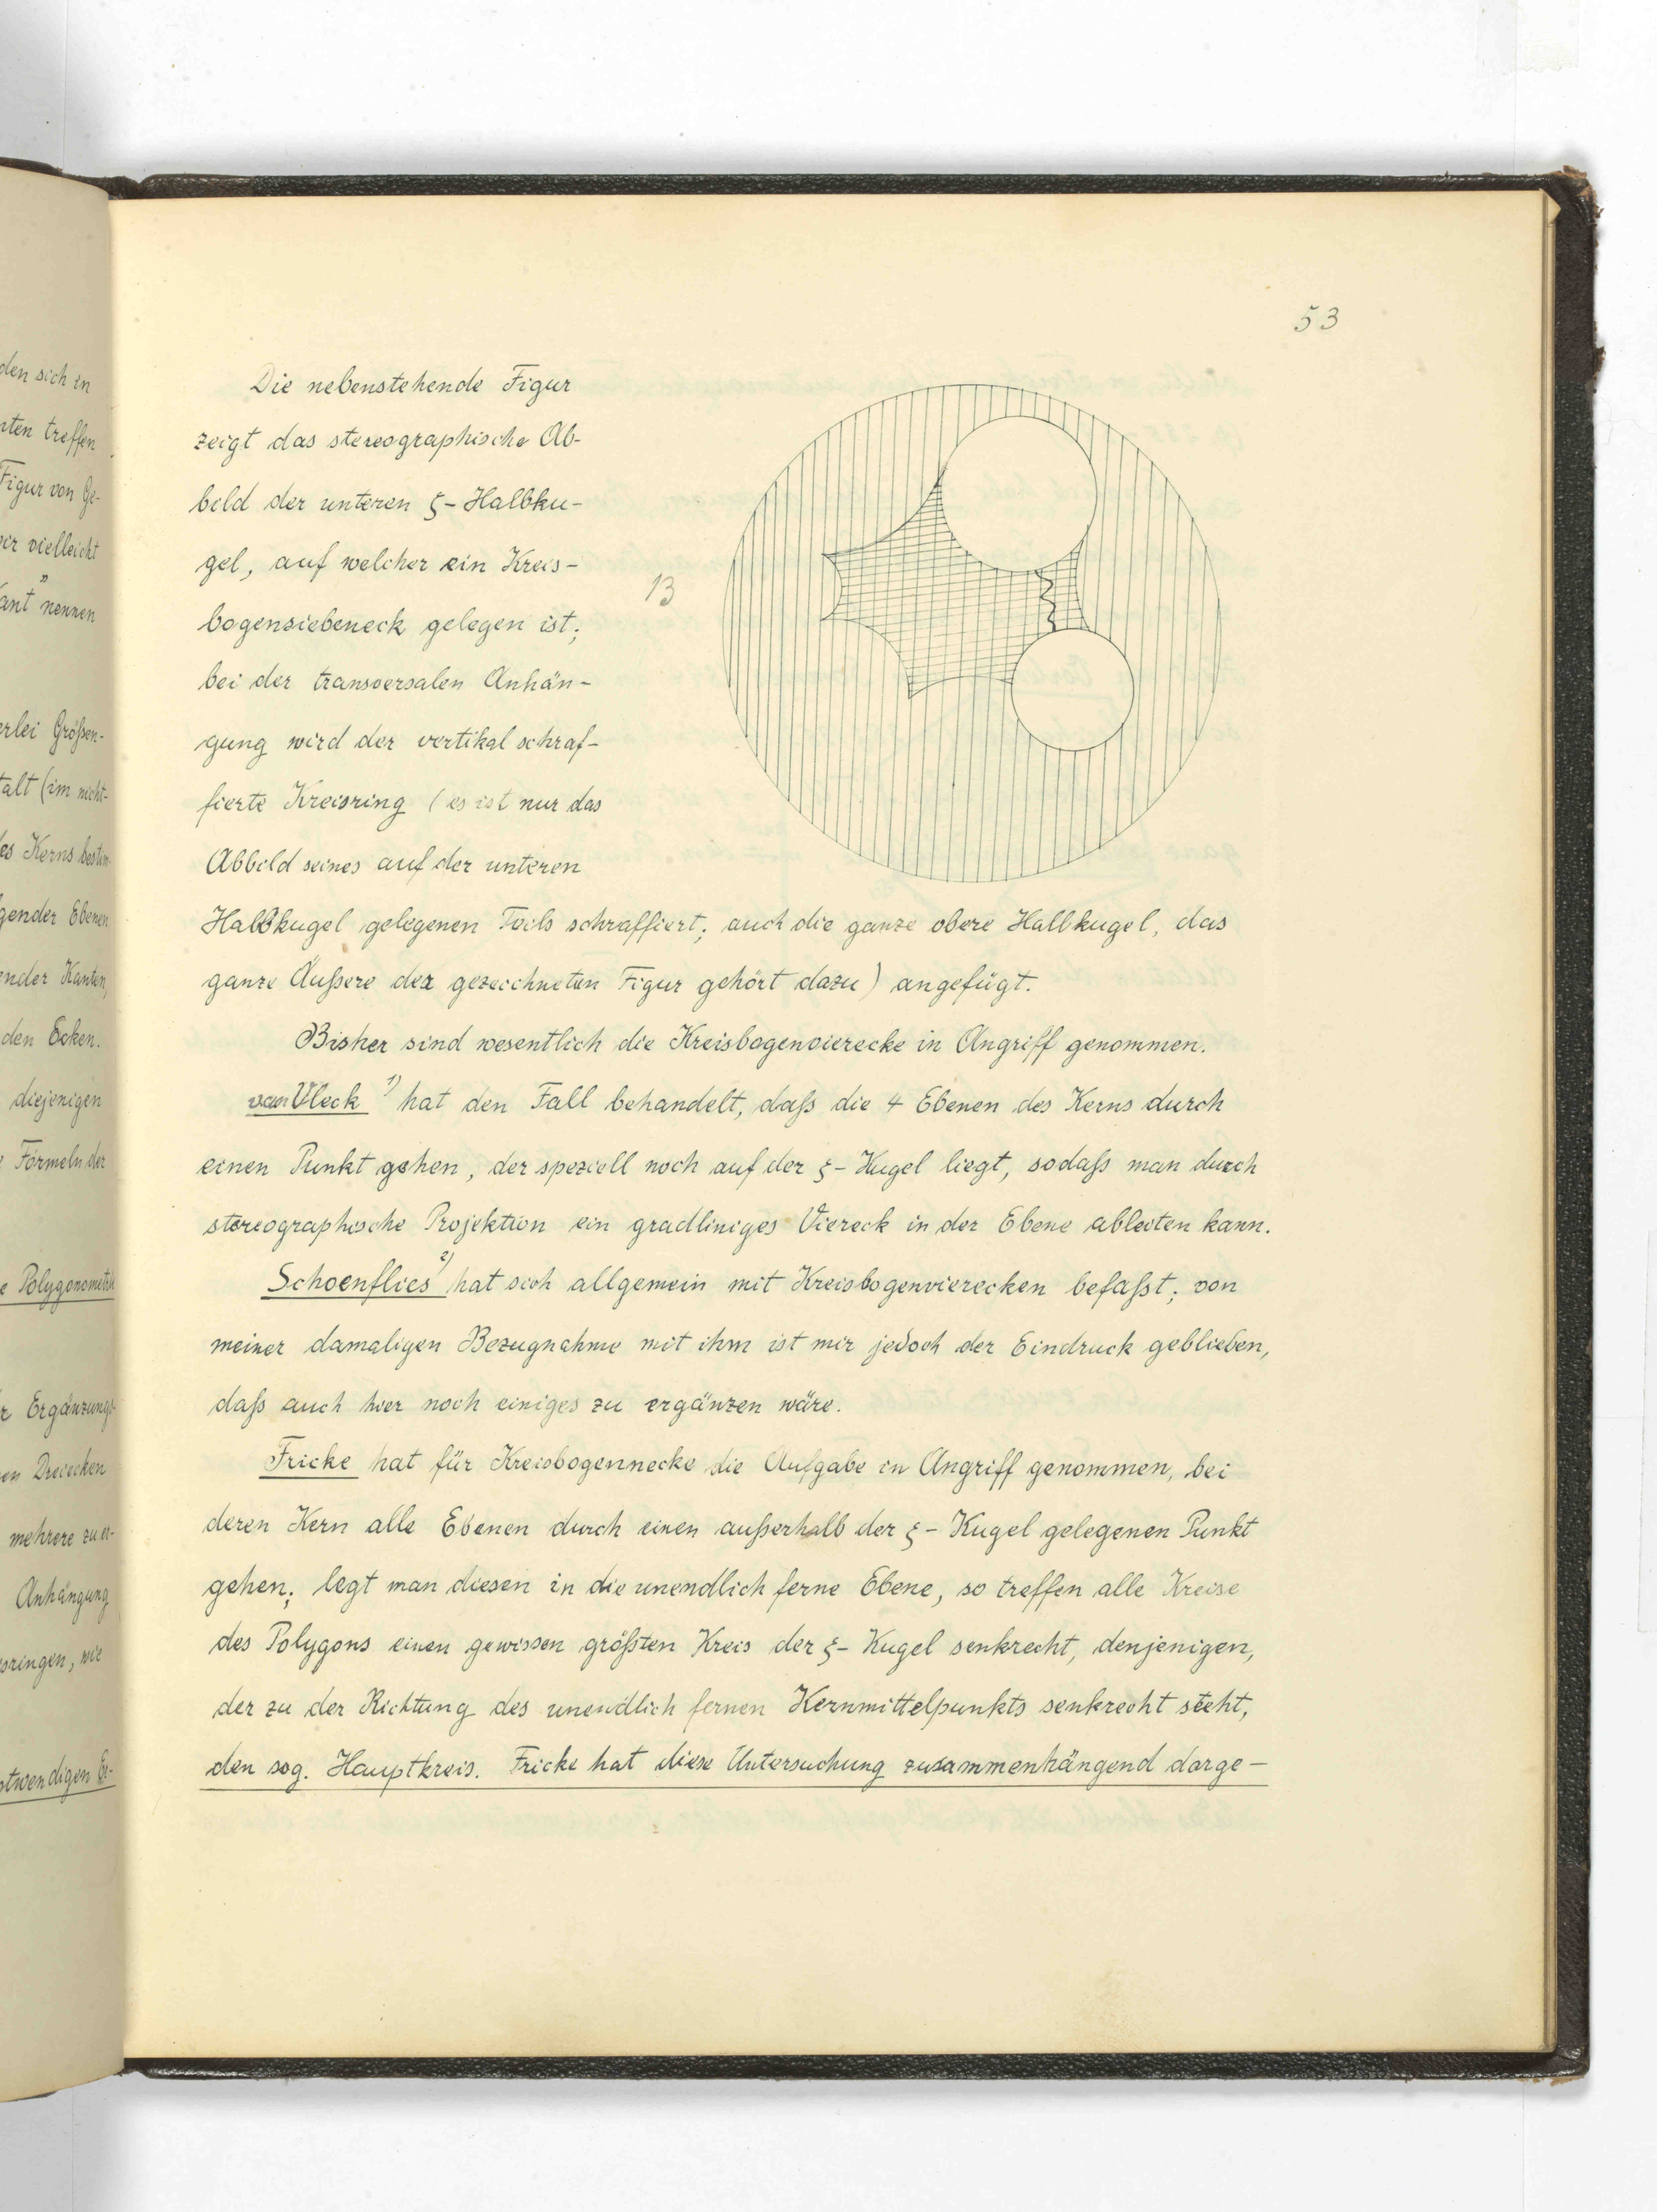 den sich in
ten treffen
Figur von Ge-
wir vielleicht
ant" nennen
erlei Größen-
talt (im nicht-
des Kerns bestim-
gender Ebenen
ender Kanten,
den Ecken.
diejenigen
Formeln der
e Polygonometrie
r Ergänzungs-
en Dreiecken
mehrere zu er-
Anhängung
springen, wie
notwendigen Er-
53
Die nebenstehende Figur
zeigt das stereographische Ab-
bild der unteren ζ-Halbku-
gel, auf welcher ein Kreis-
bogensiebeneck gelegen ist;
bei der transversalen Anhän-
gung wird der vertikal schraf-
fierte Kreisring (es ist nur das
Abbild seines auf der unteren
13
Halbkugel gelegenen Teils schraffiert; auch die ganze obere Halbkugel, das
ganze Äußere der gezeichneten Figur gehört dazu) angefügt.
Bisher sind wesentlich die Kreisbogenvierecke in Angriff genommen.
van Vleck 1) hat den Fall behandelt, daß die 4 Ebenen des Kerns durch
einen Punkt gehen, der speziell noch auf der ζ-Kugel liegt, sodaß man durch
stereographische Projektion ein gradliniges Viereck in der Ebene ableiten kann.
Schoenflies 2) hat sich allgemein mit Kreisbogenvierecken befaßt; von
meiner damaligen Bezugnahme mit ihm ist mir jedoch der Eindruck geblieben,
daß auch hier noch einiges zu ergänzen wäre.
Fricke hat für Kreisbogennecke die Aufgabe in Angriff genommen, bei
deren Kern alle Ebenen durch einen außerhalb der ζ-Kugel gelegenen Punkt
gehen; legt man diesen in die unendlich ferne Ebene, so treffen alle Kreise
des Polygons einen gewissen größten Kreis der ζ-Kugel senkrecht, denjenigen,
der zu der Richtung des unendlich fernen Kernmittelpunkts senkrecht steht,
den sog. Hauptkreis. Fricke hat diese Untersuchung zusammenhängend darge-